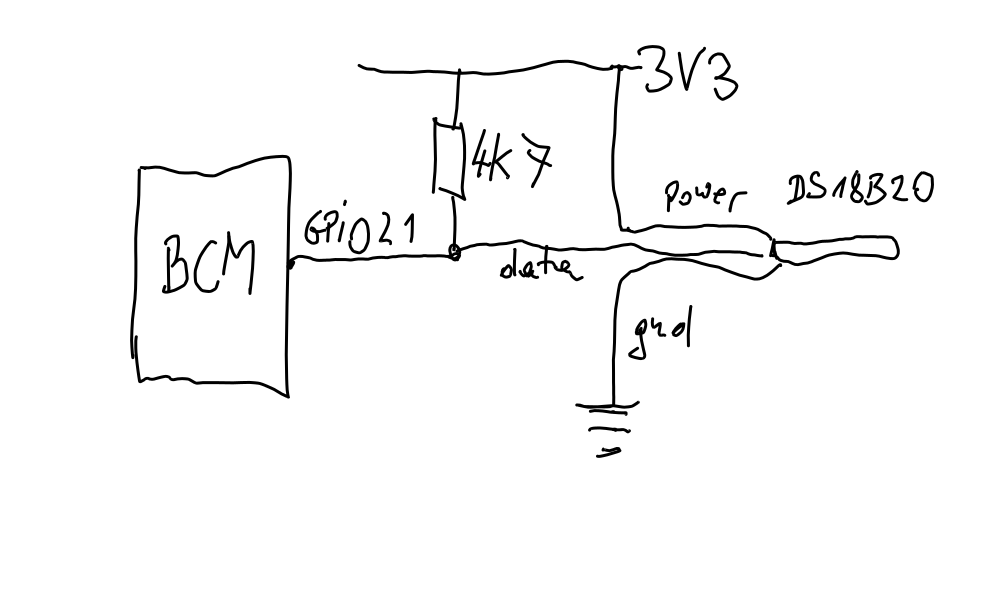 3V3
4K7
Power
DS18B20
GPiO21
BCM
data
gnd